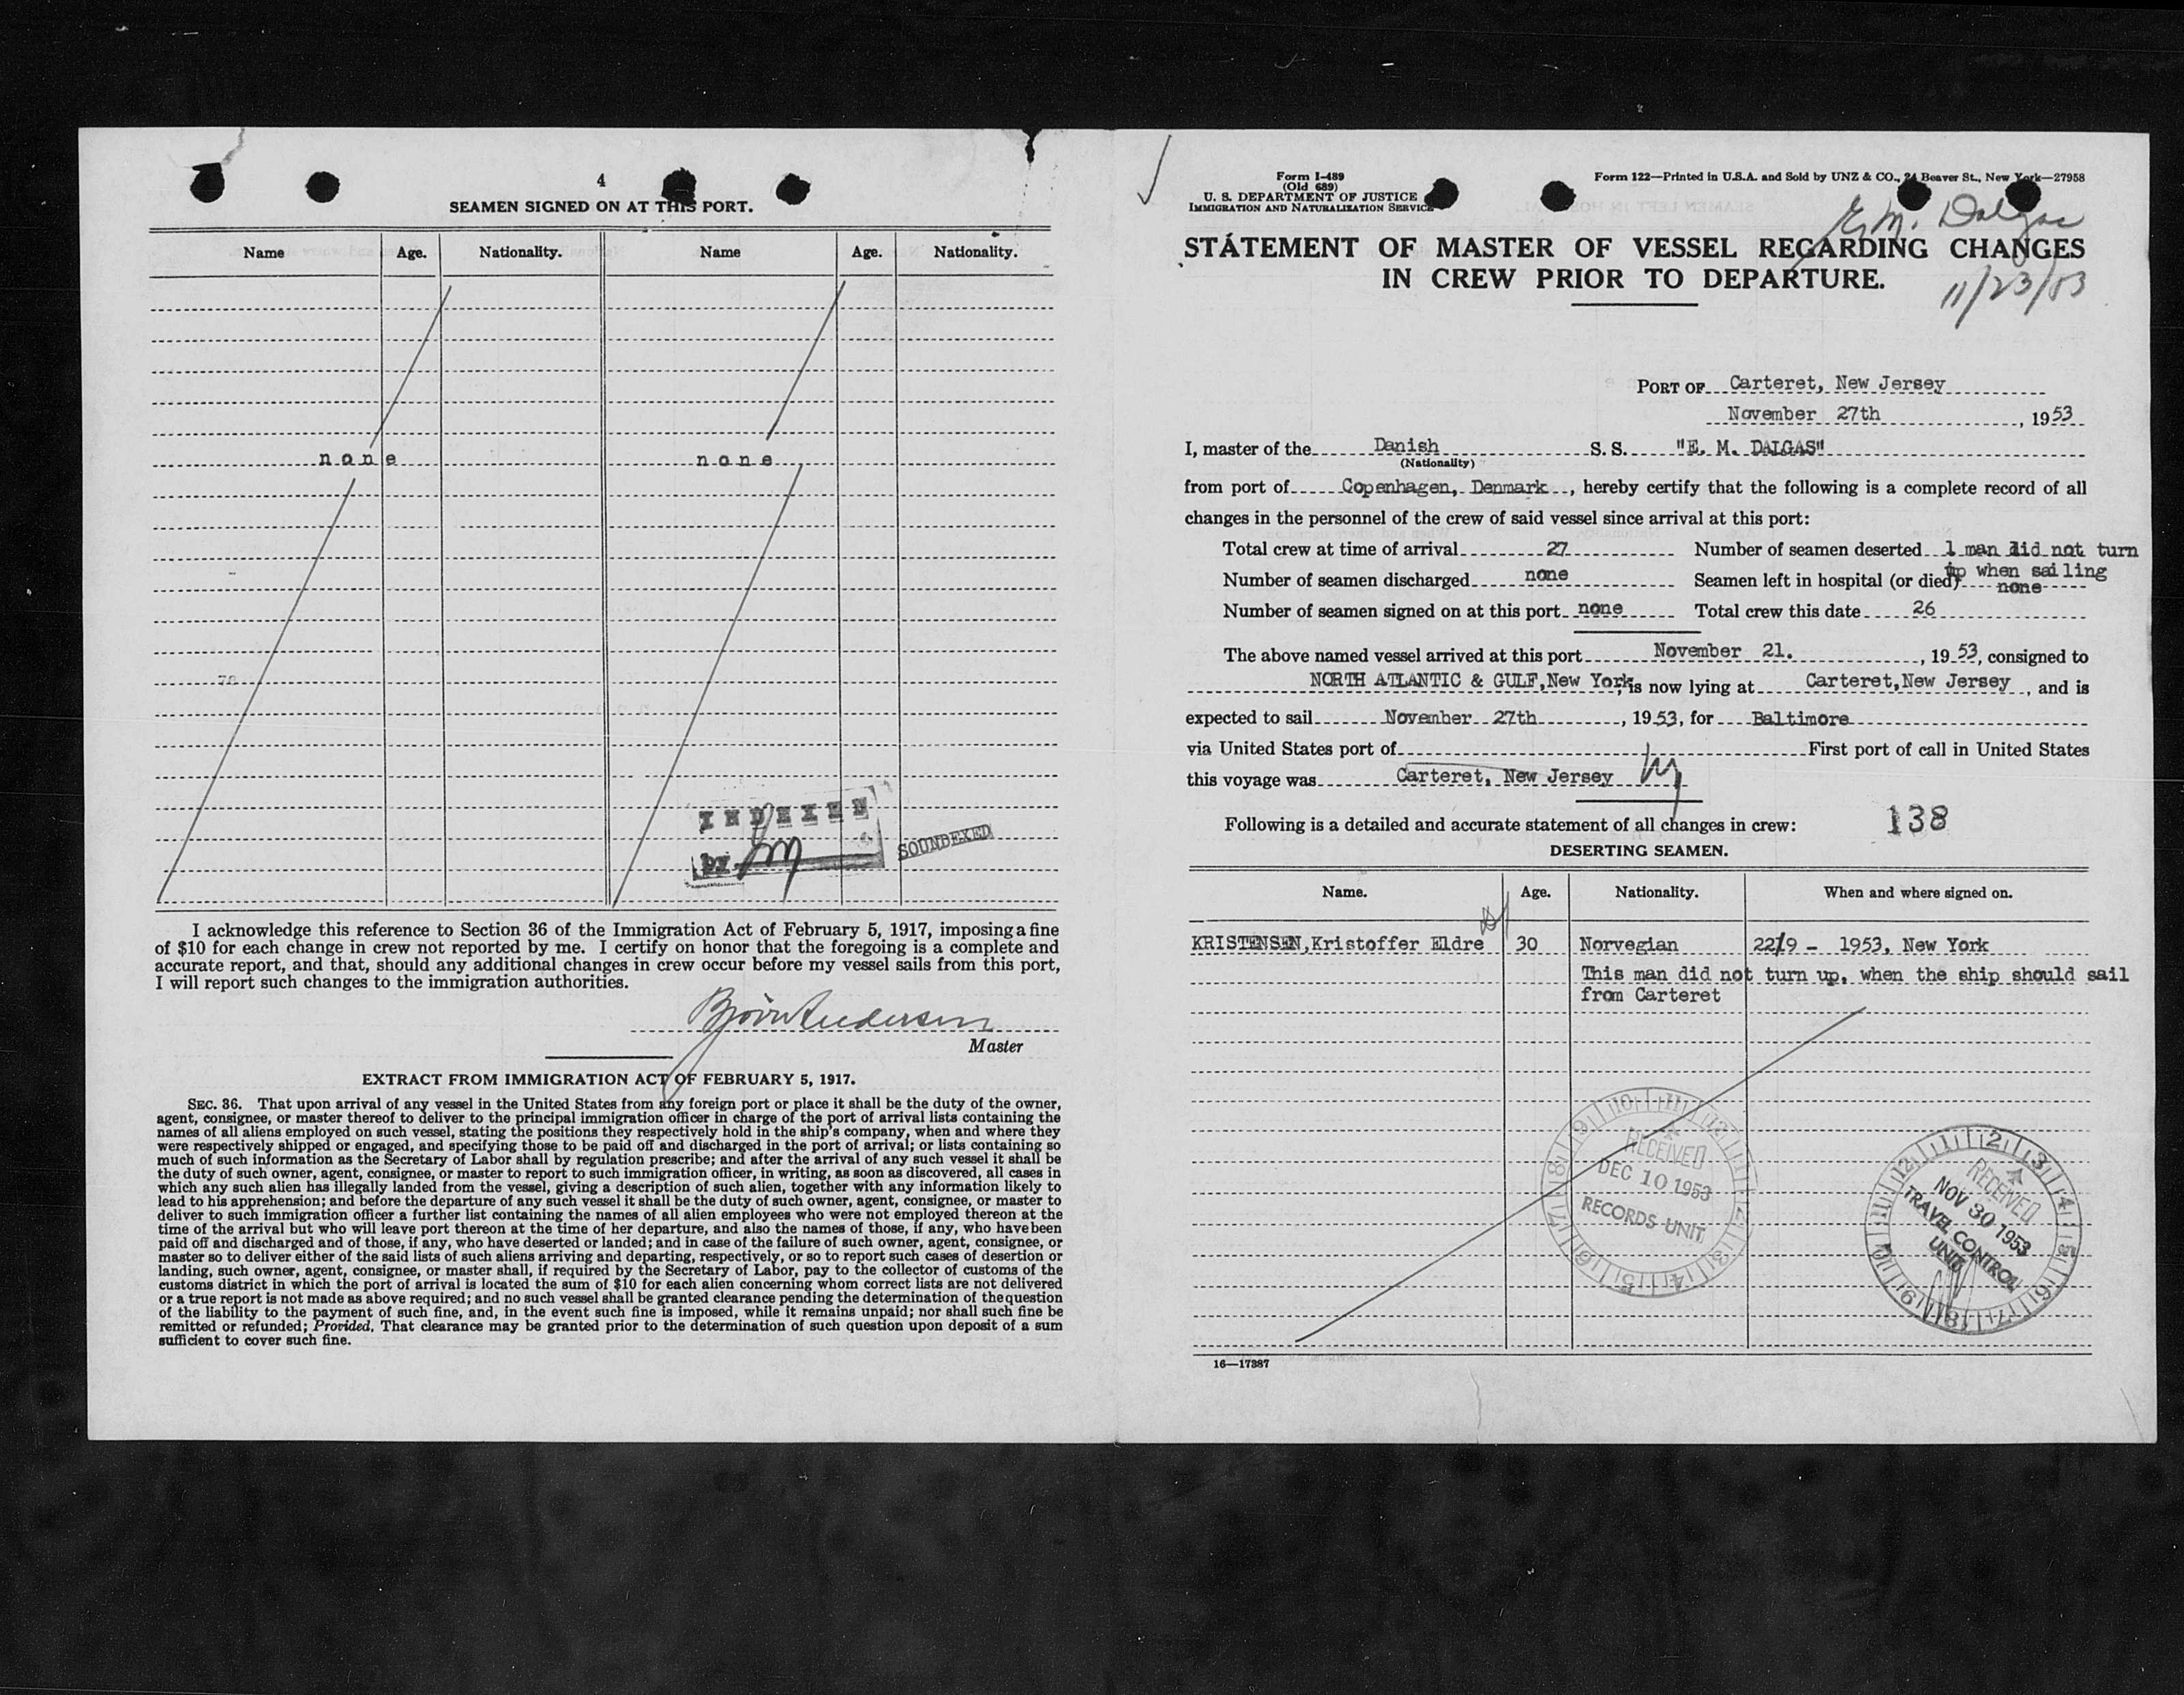 4
SEAMEN SIGNED ON AT THIS PORT.
Name Age. Nationality. Name Age. Nationality.
none none
INDEXED
by
SOUNDEXED
I acknowledge this reference to Section 36 of the Immigration Act of February 5, 1917, imposing a fine
of $10 for each change in crew not reported by me. I certify on honor that the foregoing is a complete and
accurate report, and that, should any additional changes in crew occur before my vessel sails from this port,
I will report such changes to the immigration authorities.
Bjørn Andersen
Master
EXTRACT FROM IMMIGRATION ACT OF FEBRUARY 5, 1917.
SEC. 36. That upon arrival of any vessel in the United States from any foreign port or place it shall be the duty of the owner,
agent, consignee, or master thereof to deliver to the principal immigration officer in charge of the port of arrival lists containing the
names of all aliens employed on such vessel, stating the positions they respectively hold in the ship's company, when and where they
were respectively shipped or engaged, and specifying those to be paid off and discharged in the port of arrival; or lists containing so
much of such information as the Secretary of Labor shall by regulation prescribe; and after the arrival of any such vessel it shall be
the duty of such owner, agent, consignee, or master to report to such immigration officer, in writing, as soon as discovered, all cases in
which any such alien has illegally landed from the vessel, giving a description of such alien, together with any information likely to
lead to his apprehension; and before the departure of any such vessel it shall be the duty of such owner, agent, consignee, or master to
deliver to such immigration officer a further list containing the names of all alien employees who were not employed thereon at the
time of the arrival but who will leave port thereon at the time of her departure, and also the names of those, if any, who have been
paid off and discharged and of those, if any, who have deserted or landed; and in case of the failure of such owner, agent, consignee, or
master so to deliver either of the said lists of such aliens arriving and departing, respectively, or so to report such cases of desertion or
landing, such owner, agent, consignee, or master shall, if required by the Secretary of Labor, pay to the collector of customs of the
customs district in which the port of arrival is located the sum of $10 for each alien concerning whom correct lists are not delivered
or a true report is not made as above required; and no such vessel shall be granted clearance pending the determination of the question
of the liability to the payment of such fine, and, in the event such fine is imposed, while it remains unpaid; nor shall such fine be
remitted or refunded; Provided, That clearance may be granted prior to the determination of such question upon deposit of a sum
sufficient to cover such fine.
Form I-489
(Old 689)
U. S. DEPARTMENT OF JUSTICE
IMMIGRATION AND NATURALIZATION SERVICE
Form 122—Printed in U.S.A. and Sold by UNZ & CO., 24 Beaver St., New York—27958
E. M. Dalgas
STATEMENT OF MASTER OF VESSEL REGARDING CHANGES
IN CREW PRIOR TO DEPARTURE.
11/23/53
PORT OF Carteret, New Jersey
November 27th, 1953
I, master of the Danish S. S. "E. M. DALGAS"
(Nationality)
from port of Copenhagen, Denmark, hereby certify that the following is a complete record of all
changes in the personnel of the crew of said vessel since arrival at this port:
Total crew at time of arrival 27 Number of seamen deserted 1 man did not turn
up when sailing
Number of seamen discharged none Seamen left in hospital (or died) none
Number of seamen signed on at this port none Total crew this date 26
The above named vessel arrived at this port November 21., 1953, consigned to
NORTH ATLANTIC & GULF, New York, is now lying at Carteret, New Jersey, and is
expected to sail November 27th, 1953, for Baltimore
via United States port of First port of call in United States
this voyage was Carteret, New Jersey
Following is a detailed and accurate statement of all changes in crew: 138
DESERTING SEAMEN.
Name. Age. Nationality. When and where signed on.
KRISTENSEN, Kristoffer Eldre 30 Norwegian 22/9 - 1953, New York
This man did not turn up, when the ship should sail
from Carteret
RECEIVED
DEC 10 1953
RECORDS UNIT
RECEIVED
NOV 30 1953
TRAVEL CONTROL
UNIT
16—17387